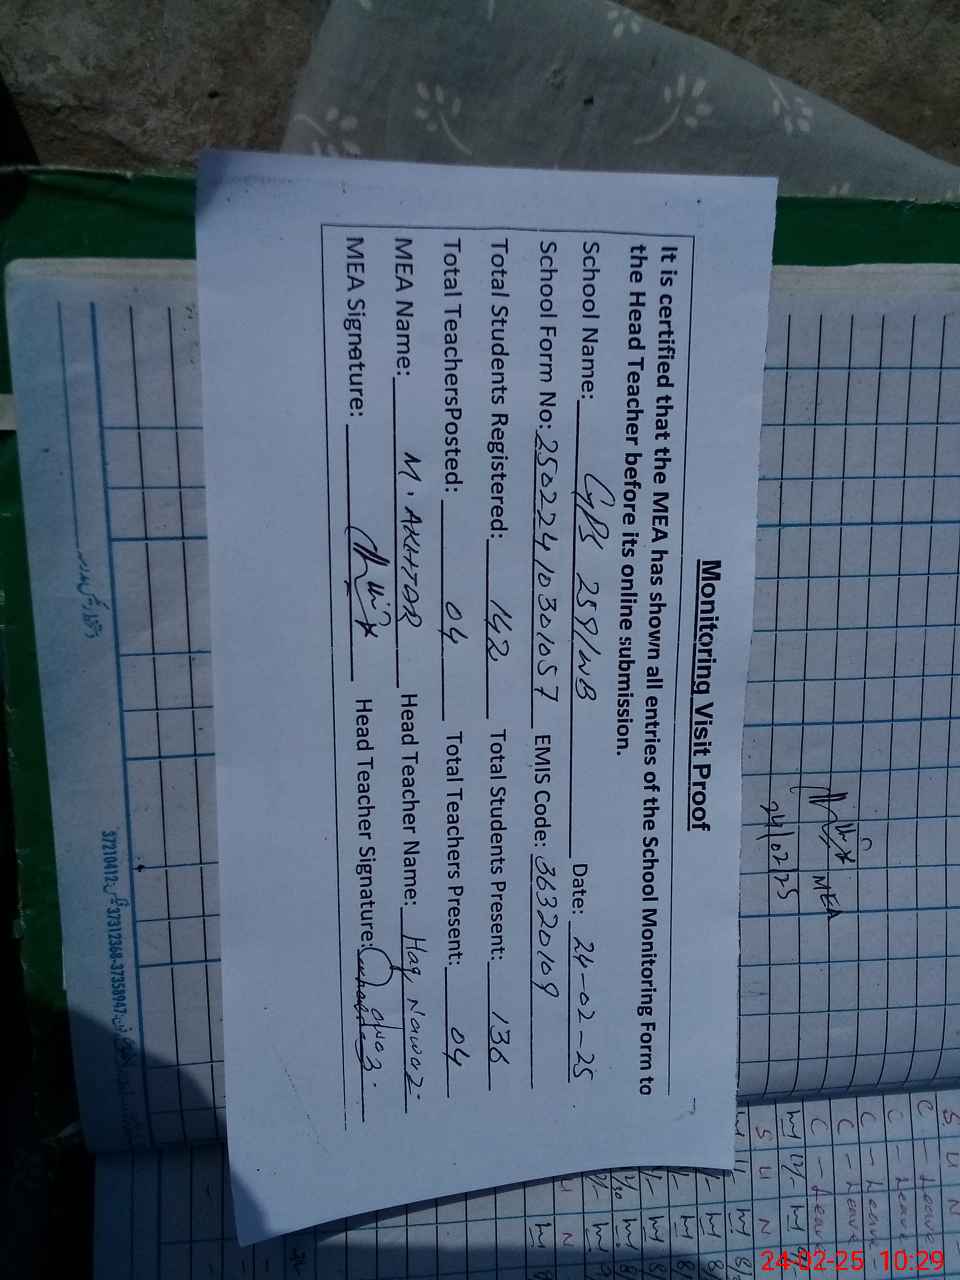 Monitoring Visit Proof
It is certified that the MEA has shown all entries of the School Monitoring Form to
the Head Teacher before its online submission.
School Name: GPS 259/WB Date: 24-02-25
School Form No: 25022410301057 EMIS Code: 36320109
Total Students Registered: 142 Total Students Present: 136
Total TeachersPosted: 04 Total Teachers Present: 04
MEA Name: M. AKHTAR Head Teacher Name: Haq Nawaz
MEA Signature: Head Teacher Signature:
MEA
24/02/25
S U N
C - Leave
C - Leave
C - Leave
C - Leave
C - Leave
S U N
37210412 37312368-37358947
24-02-25 10:29